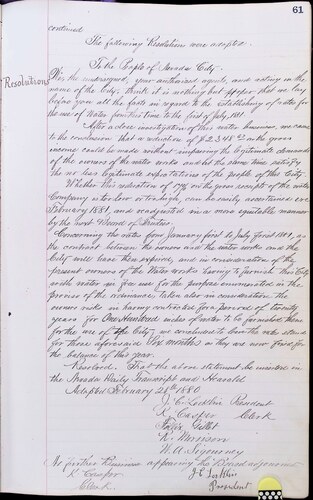 61
continued
The following Resolution were adopted.
Resolutions
To the People of Nevada City.
We the undersigned, your authorised agents, and acting in the
name of the City, think it is nothing but proper that we lay
before you all the facts in regard to the establishing of rates for
the use of Water from this time to the first of July, 1881.
After a close investigation of this water business, we came
to the conclusion that a reduction of $2348 in the gross
income could be made without impairing the legitimate demands
of the owners of the water works and at the same time satisfy
the no less legitimate expectations of the people of this City.
Whether this reduction of 17% on the gross receipts of the water
Company is too low or too high, can be easily ascertained over
February 1881, and readjusted in a more equitable manner
by the next Board of Trustees.
Concerning the rates from January first to July first 1881, as
the contract between the owners and the water works and the
City will have then expired, and in consideration of the
present owners of the Water Works having to furnish this City
with water free for use for the purpose enumerated in the
process of the ordinance, taken also in consideration the
owners risk in having contracted for a period of twenty
years for One Hundred inches of water to be furnished them
for the use of the City, we concluded to leave the rates stand
for those aforesaid Six months as they are now fixed for
the balance of this year.
Resolved. That the above statement be inserted in
the Nevada Daily Transcript and Herald
Adopted February 21st 1880.
President
K. Casper Clerk
Gillet
K.
W. A. Sigourney
No further Business appearing the Board adjourned
K. Casper
Clerk
President